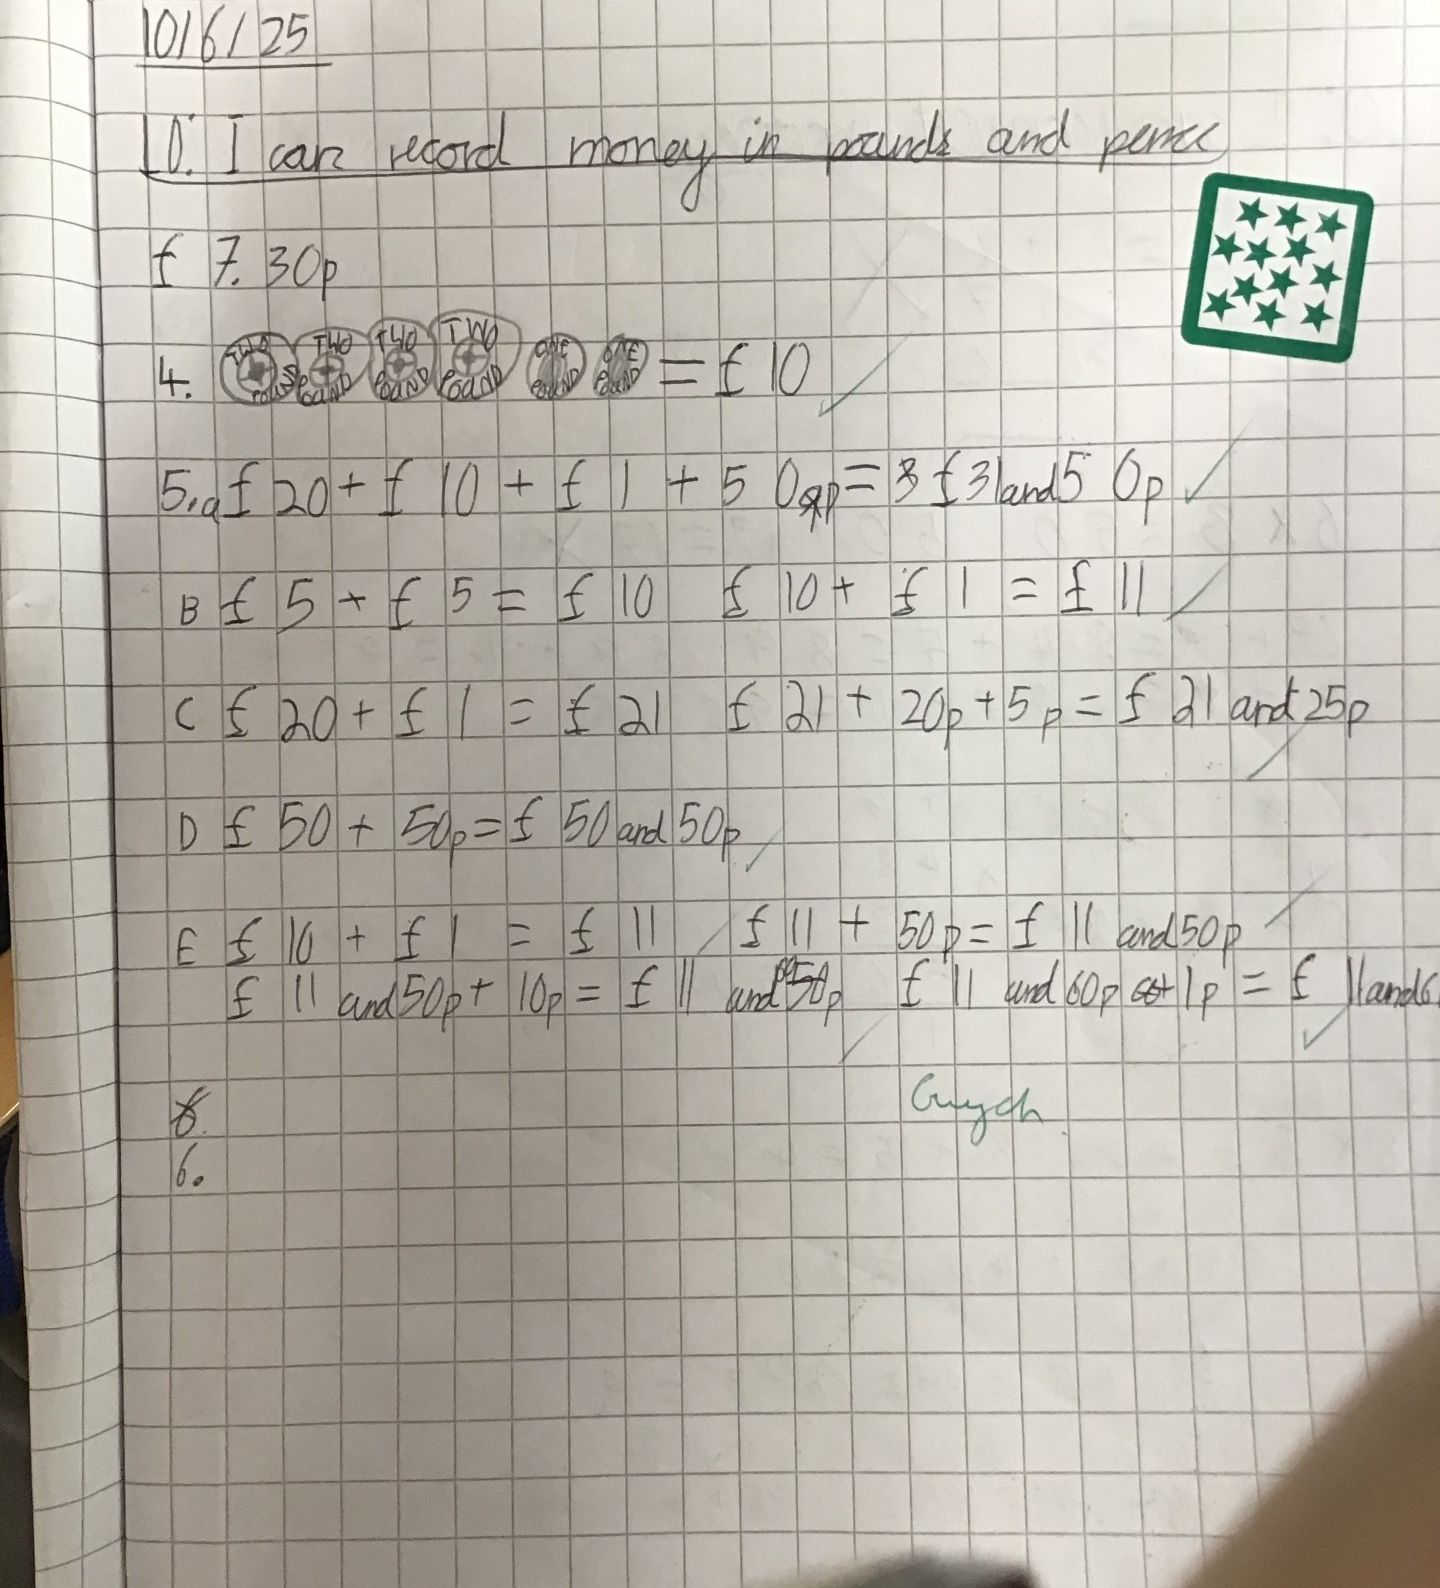 10/6/25
LO: I can record money in pounds and pence
£ 7. 30p
4. TWO POUND TWO POUND TWO POUND TWO POUND ONE POUND ONE POUND = £10
5.a £ 20 + £ 10 + £ 1 + 5 0p = 3 £31 and 5 0p
B £ 5 + £ 5 = £ 10 £ 10 + £ 1 = £ 11
C £ 20 + £ 1 = £ 21 £ 21 + 20p + 5p = £ 21 and 25p
D £ 50 + 50p = £ 50 and 50p
E £ 10 + £ 1 = £ 11 £ 11 + 50p = £ 11 and 50p
£ 11 and 50p + 10p = £ 11 and £ 11 and 60p + 1p = £ 11 and 6
6.